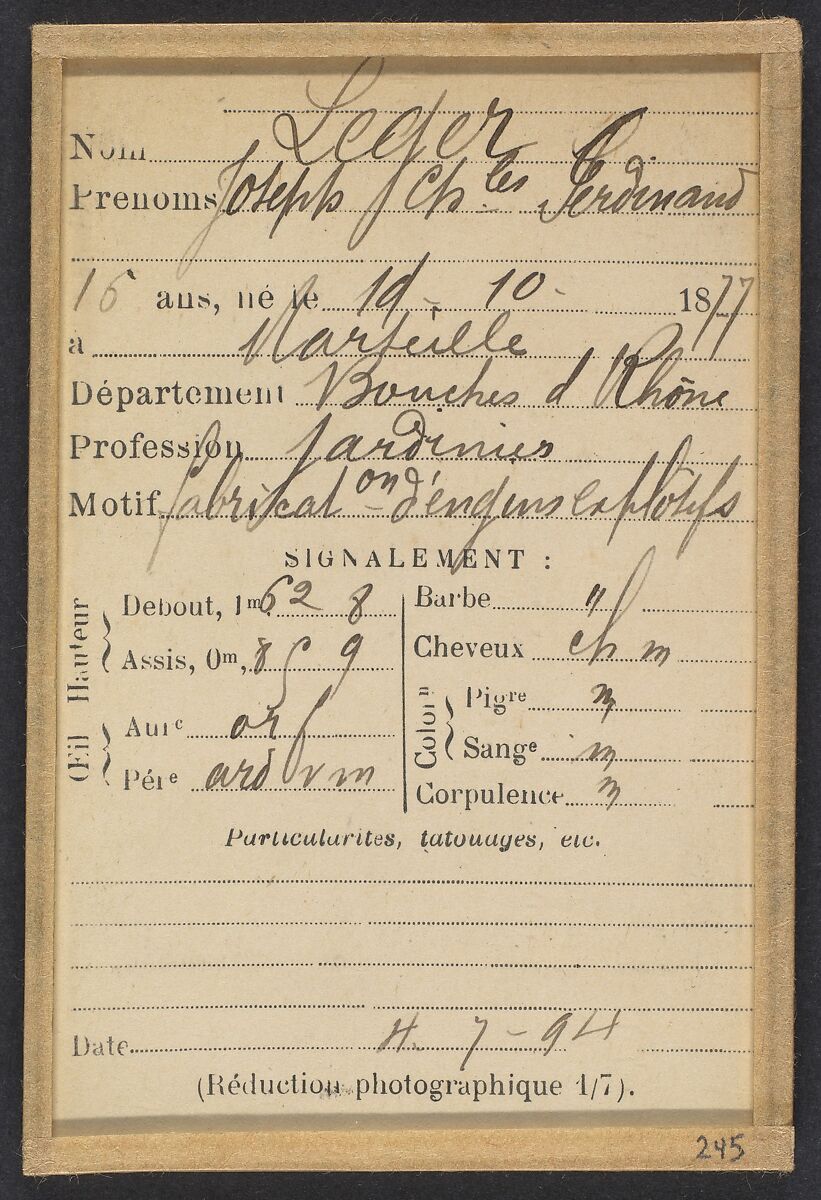 Nom Leger
Prenoms Joseph Ch.les Ferdinand
16 ans, né le 19 - 10 - 1877
à Marseille
Département Bouches d Rhône
Profession Jardinier
Motif fabricat on d'engins explosifs
SIGNALEMENT :
Hauteur
Debout, 1m 62 8
Assis, 0m, 8 9
Œil
Aure or
Pére ard v m
Barbe "
Cheveux ch m
Colorn
Pigre m
Sange m
Corpulence m
Particularités, tatouages, etc.
Date 4. 7 - 94
(Réduction photographique 1/7).
245